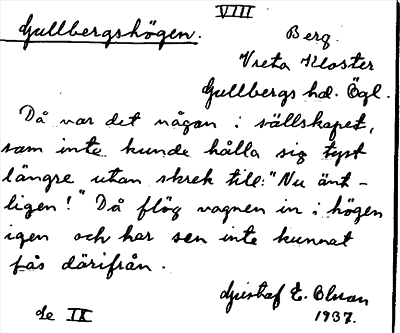 VIII
Gullbergshögen.
Berg.
Vreta Kloster
Gullbergs hd. Ögl.
Då var det någon i sällskapet,
som inte kunde hålla sig tyst
längre utan skrek till: "Nu änt-
ligen!" Då flög vagnen in i högen
igen och har sen inte kunnat
fås därifrån.
Gustaf E. Olson
1937.
de IX